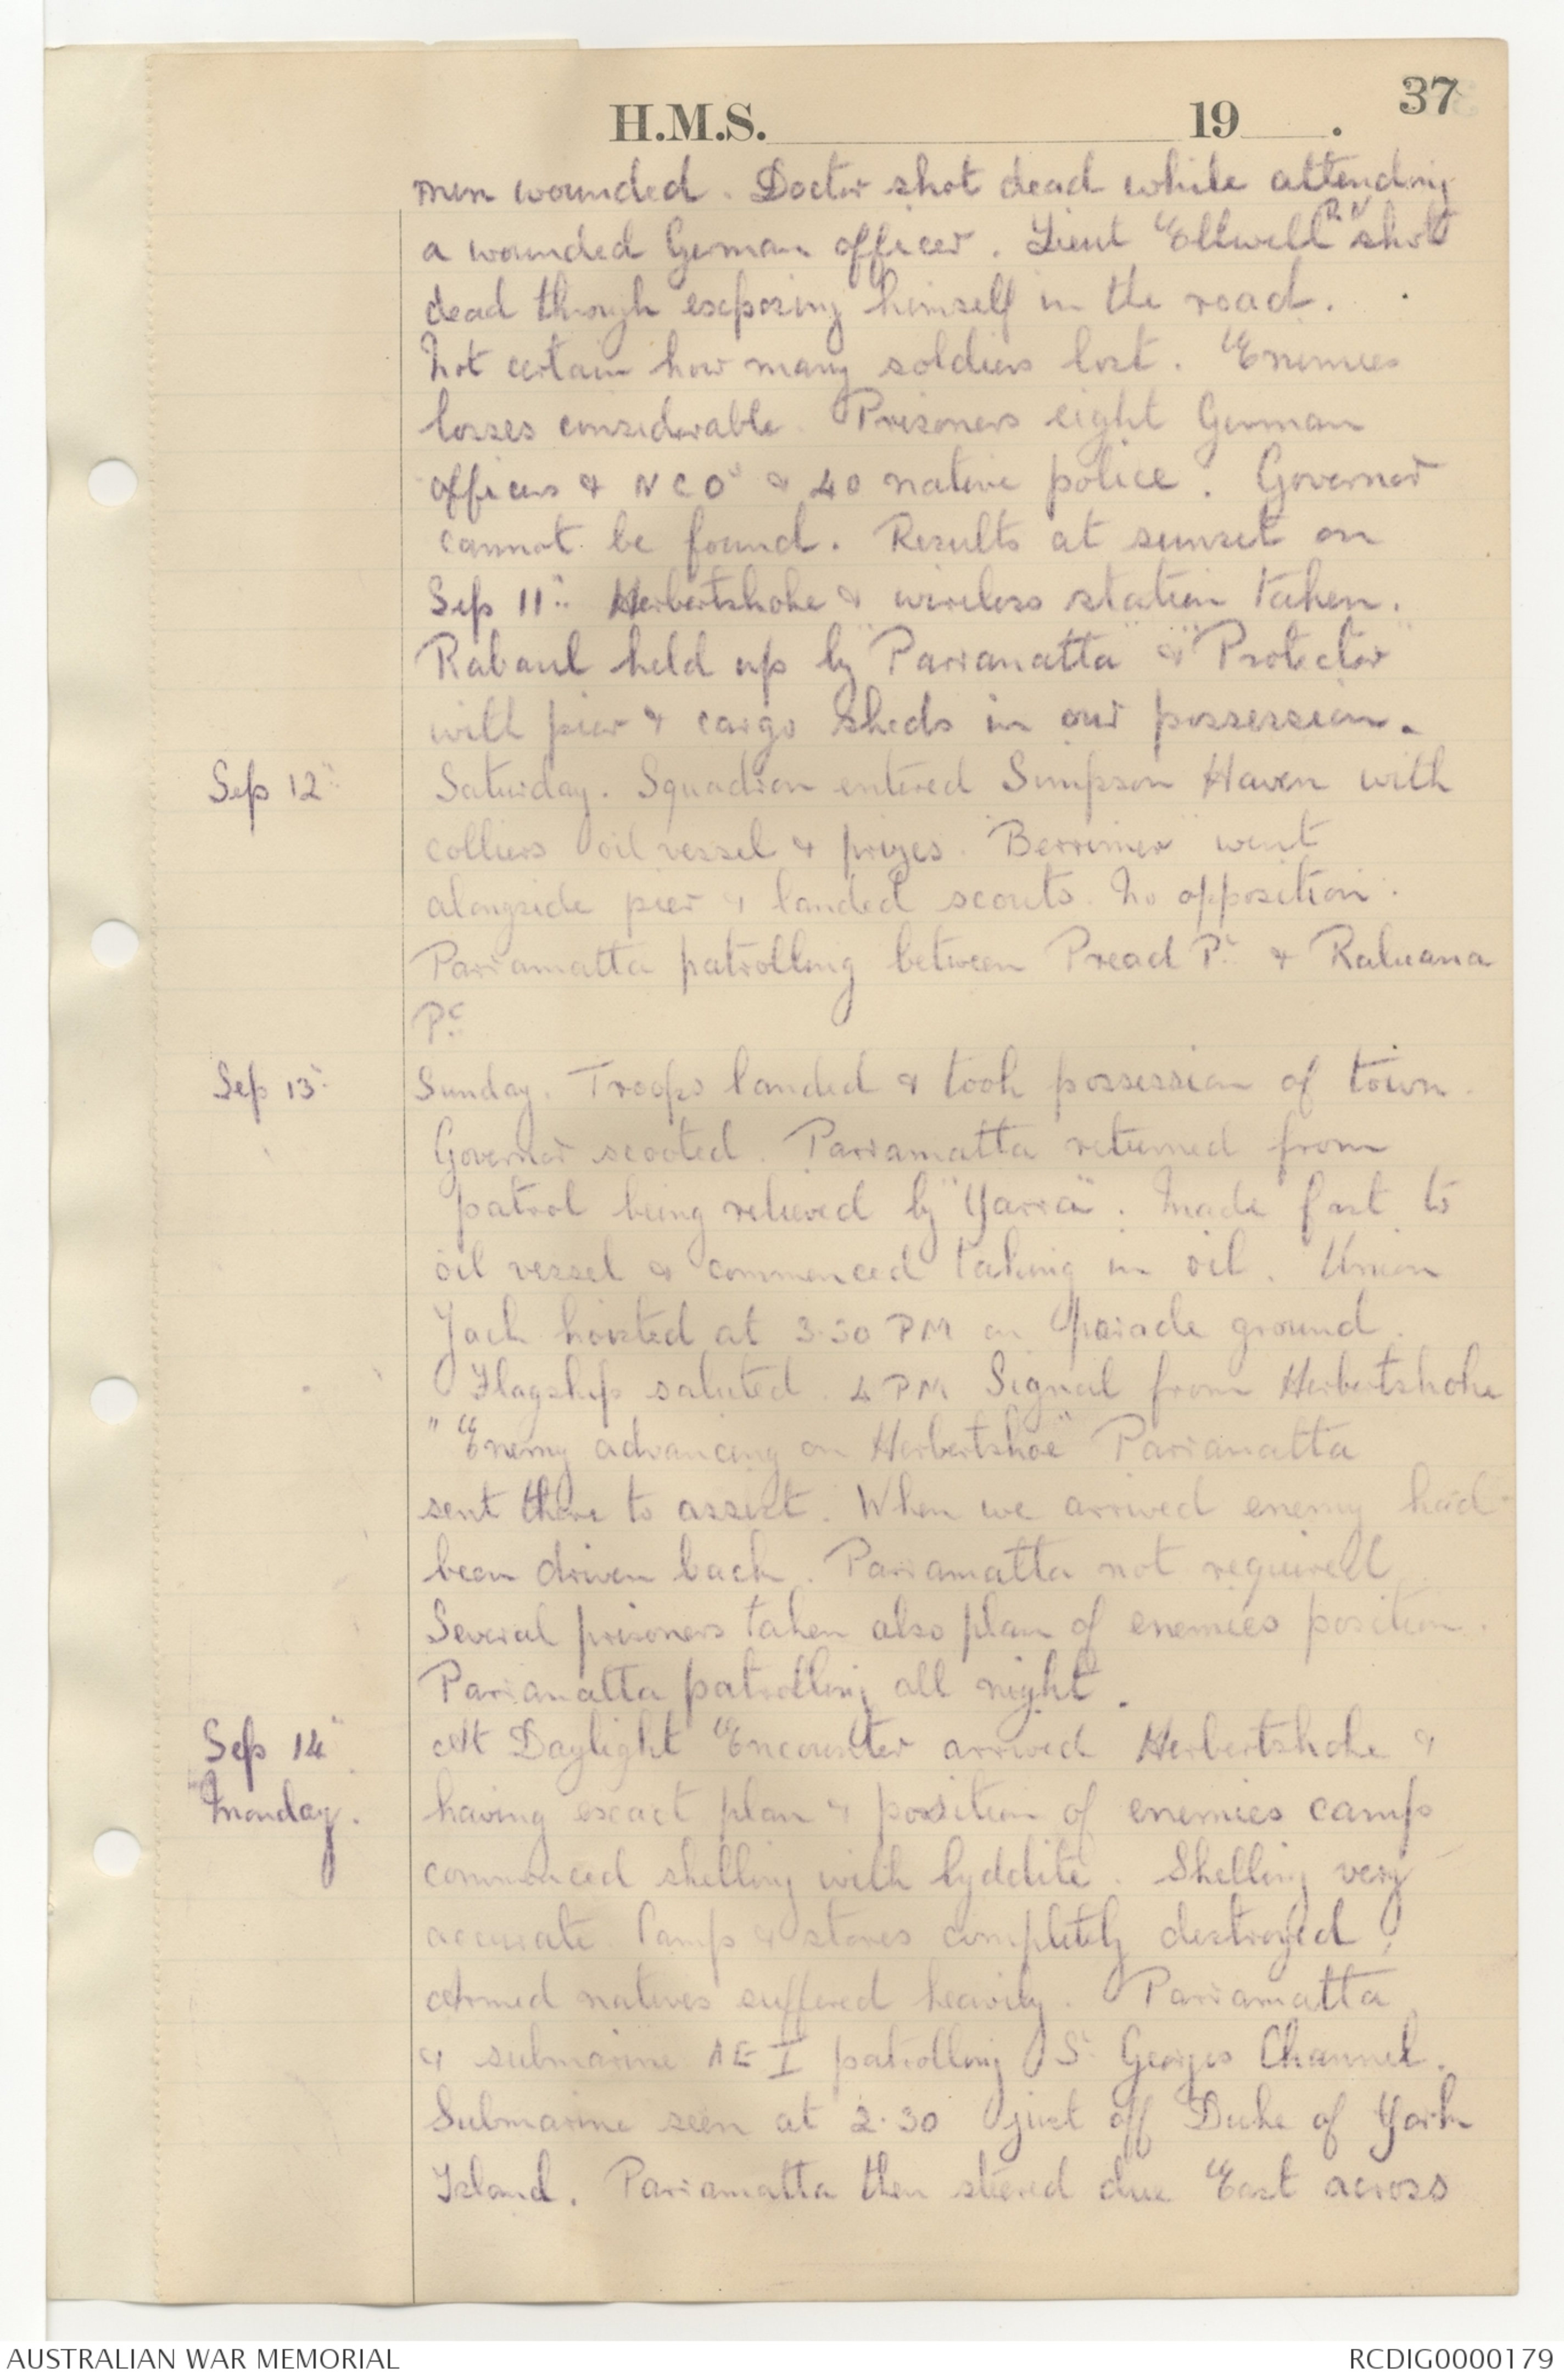 37
H.M.S. 19 .
men wounded. Doctor shot dead while attending
a wounded German officer. Lieut Ellwell R.N shot
dead through exposing himself in the road.
Not certain how many soldiers lost. Enemies
losses considerable. Prisoners eight German
officers & NCOs & 40 native police. Governor
cannot be found. Results at sunset on
Sep 11th Herbertshohe & wireless station taken.
Rabaul held up by "Parramatta" & "Protector"
with pier & cargo sheds in our possession.
Sep 12th Saturday. Squadron entered Simpson Haven with
colliers oil vessel & prizes. "Berrimer" went
alongside pier & landed scouts. No opposition.
Parramatta patrolling between Pread Pt & Raluana
Pt
Sep 13th Sunday. Troops landed & took possession of town.
Governor scooted. Parramatta returned from
patrol being relieved by "Yarra". Made fast to
oil vessel & commenced taking in oil. Union
Jack hoisted at 3.30 PM on parade ground.
Flagship saluted. 4 PM Signal from Herbertshohe
"Enemy advancing on Herbertshoe" Parramatta
sent there to assist. When we arrived enemy had
been driven back. Parramatta not required
Several prisoners taken also plan of enemies position.
Parramatta patrolling all night.
Sep 14th At Daylight Encounter arrived Herbertshohe &
Monday. having exact plan & position of enemies camp
commenced shelling with lyddite. Shelling very
accurate. Camp & stores completely destroyed,
armed natives suffered heavily. Parramatta
& submarine AE I patrolling St Georges Channel.
Submarine seen at 2.30 just off Duke of York
Island. Parramatta then steered due East across
AUSTRALIAN WAR MEMORIAL
RCDIG0000179